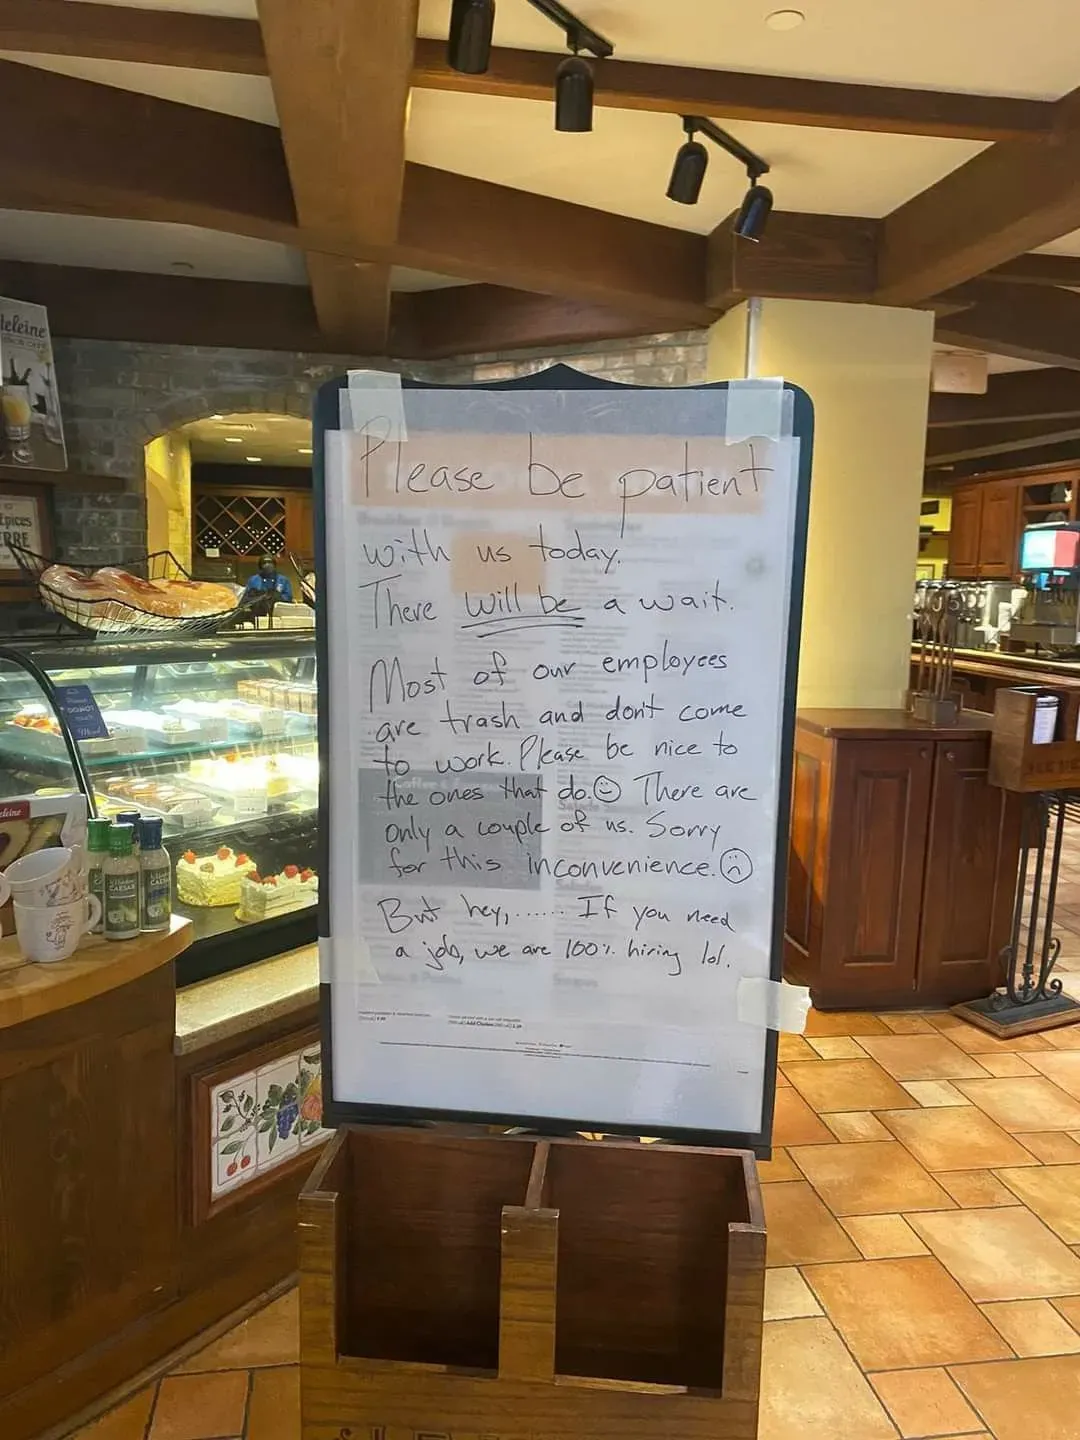 Please be patient
with us today.
There will be a wait.
Most of our employees
are trash and don't come
to work. Please be nice to
the ones that do ☺ There are
only a couple of us. Sorry
for this inconvenience. ☹
But hey,...... If you need
a job, we are 100% hiring lol.
deleine
CAESAR
CAESAR